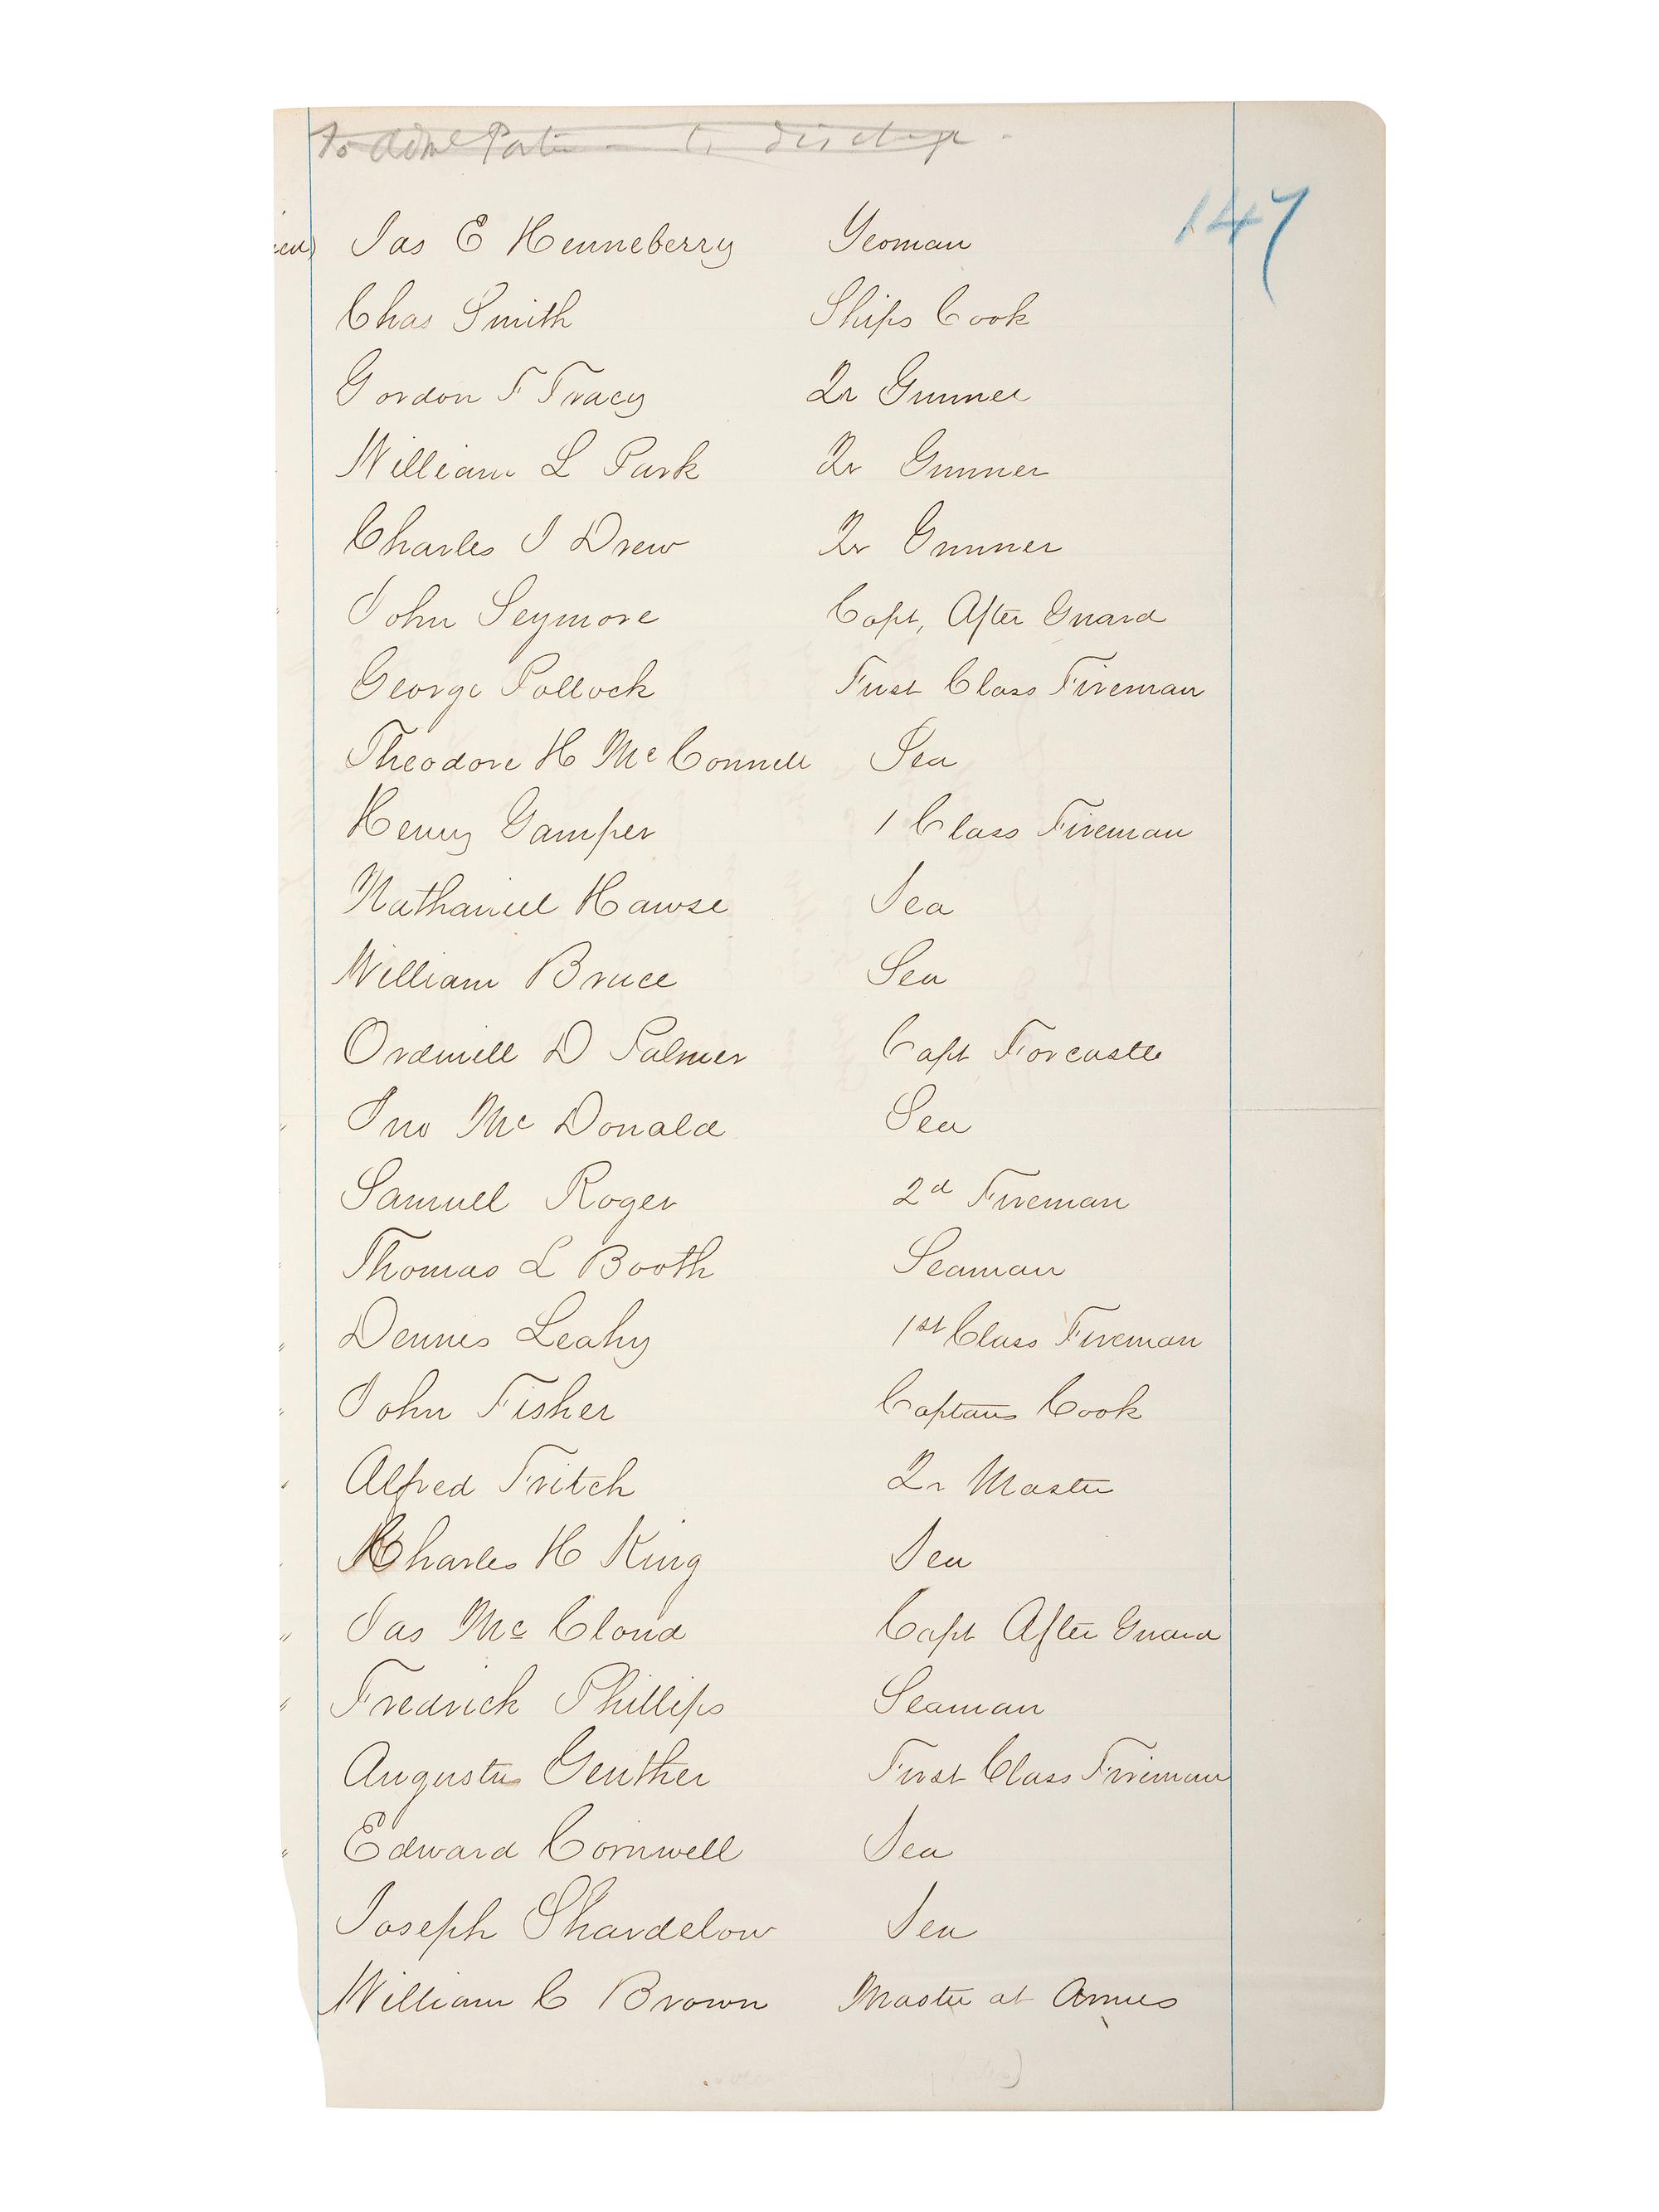 To Adml Porter - To discharge -
147
Jas E Henneberry Yeoman
Chas Smith Ships Cook
Gordon F Tracy Qr Gunner
William L Park Qr Gunner
Charles J Drew Qr Gunner
John Seymore Capt, After Guard
George Pollock First Class Fireman
Theodore H McConnell Sea
Henry Gamper 1 Class Fireman
Nathaniel Hawse Sea
William Bruce Sea
Ordmill D Palmer Capt Forcastle
Jno McDonald Sea
Samuel Roger 2d Fireman
Thomas L Booth Seaman
Dennis Leahy 1st Class Fireman
John Fisher Captains Cook
Alfred Fritch Qr Master
Charles H King Sea
Jas McCloud Capt After Guard
Fredrick Phillips Seaman
Augustus Genther First Class Fireman
Edward Cornwell Sea
Joseph Shardelow Sea
William C Brown Master at Arms